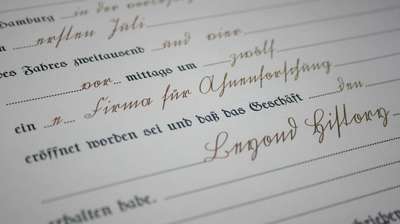 Hamburg in der
n ersten Juli
des Jahres zweitausend und vier
vor mittags um zwölf
ein e Firma für Ahnenforschung
eröffnet worden sei und daß das Geschäft den
Beyond History
erhalten habe.
schriebenen